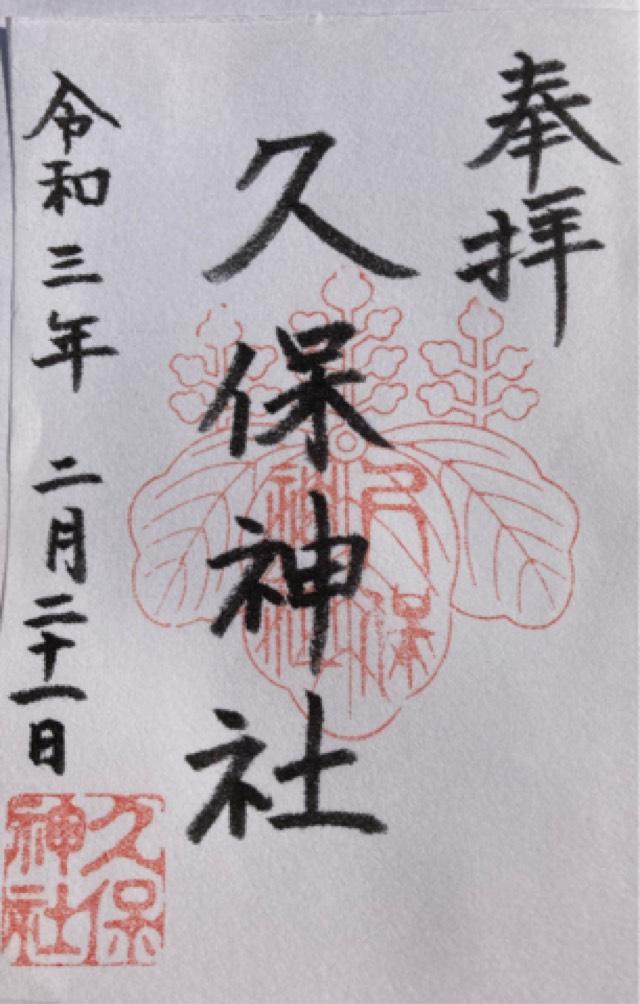 奉拝
久保神社
久保
神社
令和三年 二月二十一日
久保
神社